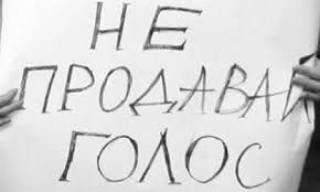 НЕ
ПРОДАВАЙ
ГОЛОС